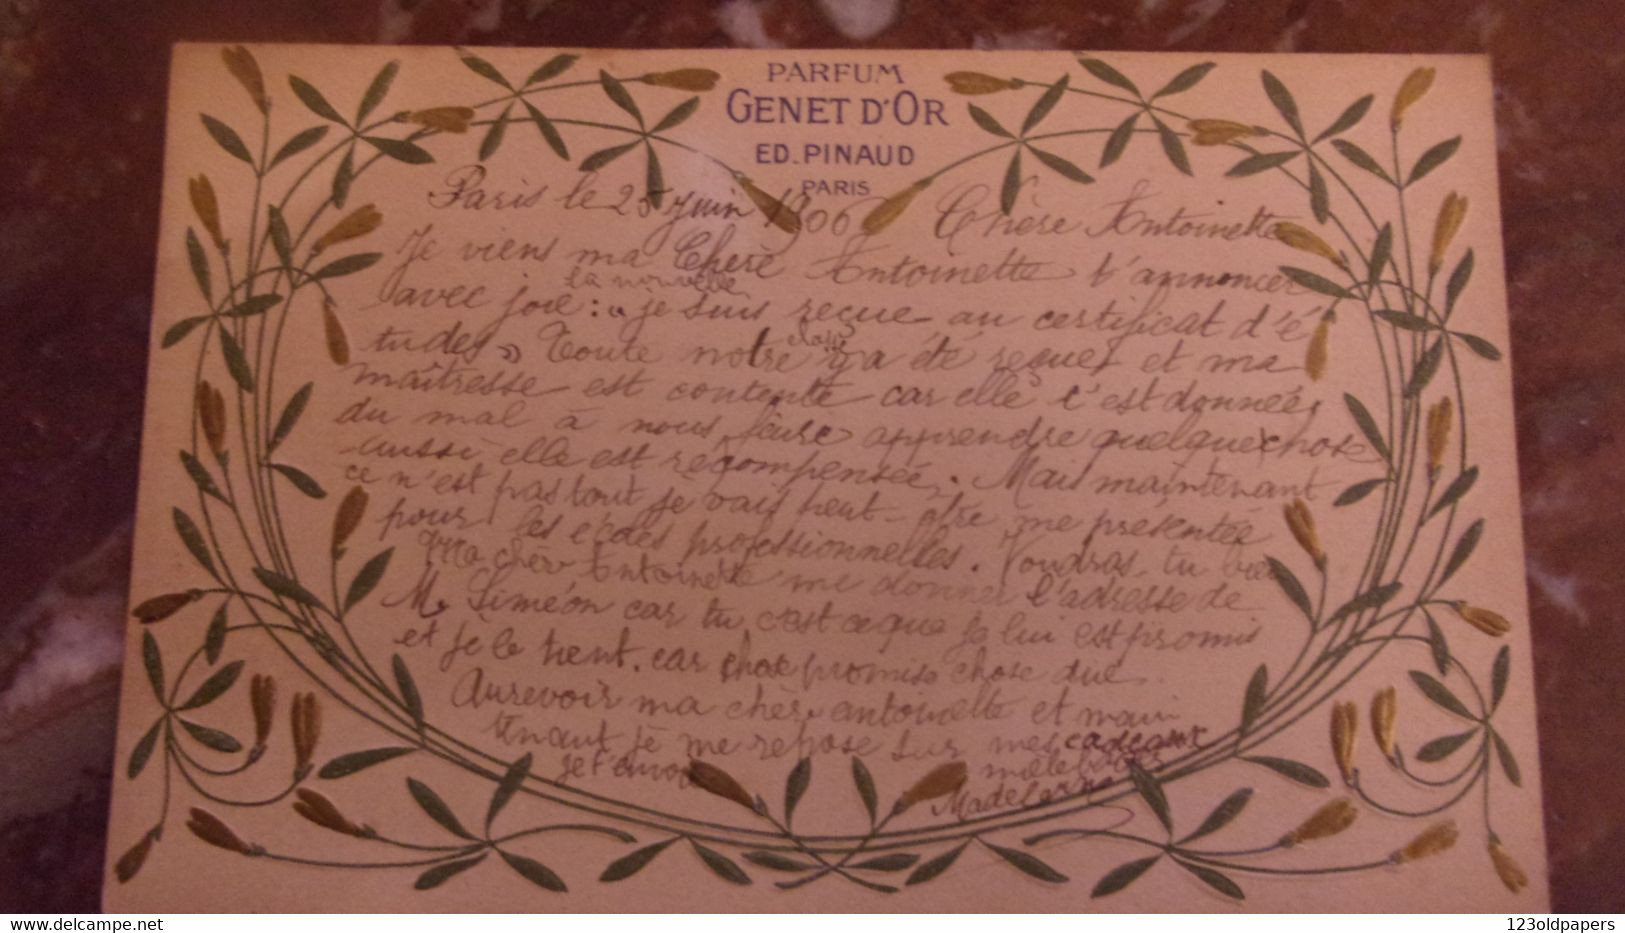 PARFUM
GENET D'OR
ED. PINAUD
PARIS
Paris le 25 juin 1900 Chère Antoinette
Je viens ma Chère Antoinette t'annoncer
la nouvelle
avec joie : " je suis reçue au certificat d'é
tudes " Toute notre classe a été reçues et ma
maîtresse est contente car elle c'est donnée
du mal à nous faire apprendre quelque chose
aussi elle est récompensée. Mais maintenant
ce n'est pas tout je vais peut-être me présentée
pour les écoles professionnelles. Voudras-tu bien
Ma chèr Antoinette me donner l'adresse de
M. Siméon car tu c'est ce que je lui est promis
et je le tient. car chose promise chose due
Aurevoir ma chèr antoinette et main
tenant je me repose sur mes
je t'envoi mille baisers
123oldpapers